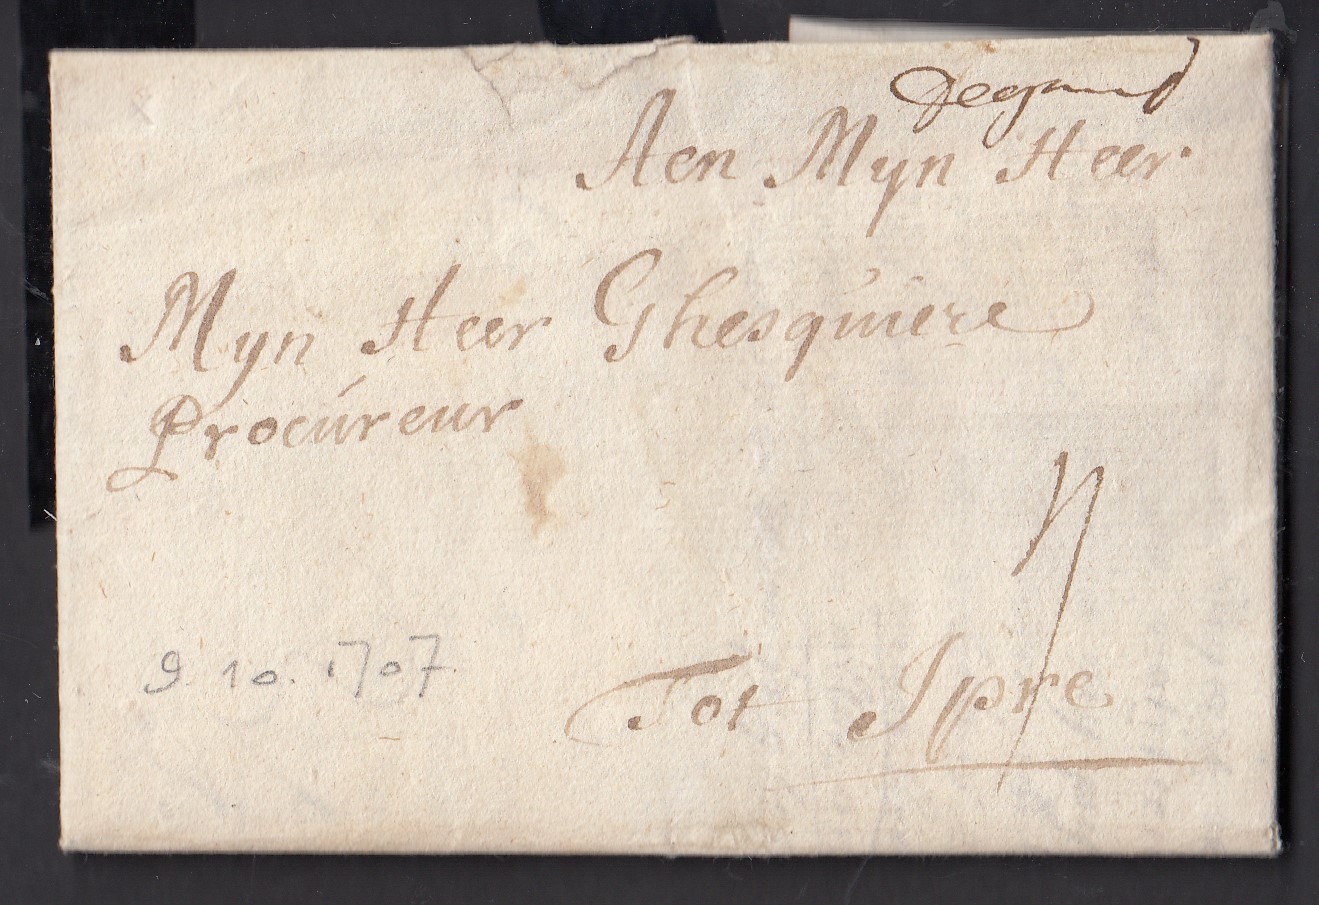 Degand
Aen Myn Heer
Myn Heer Ghesquiere
Procúreur
9. 10. 1707.
Tot Ipre